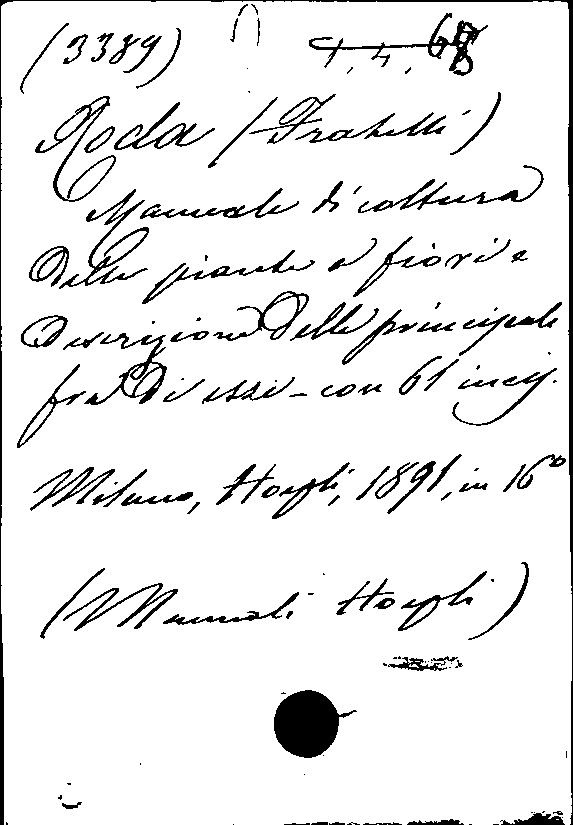 (3389) 1. 4. 68
Roda (Fratelli)
Manuale di coltura
delle piante a fiori e
descrizione delle principali
fra di essi - con 61 incis.
Milano, Hoepli, 1891, in 16°
(Manuali Hoepli)